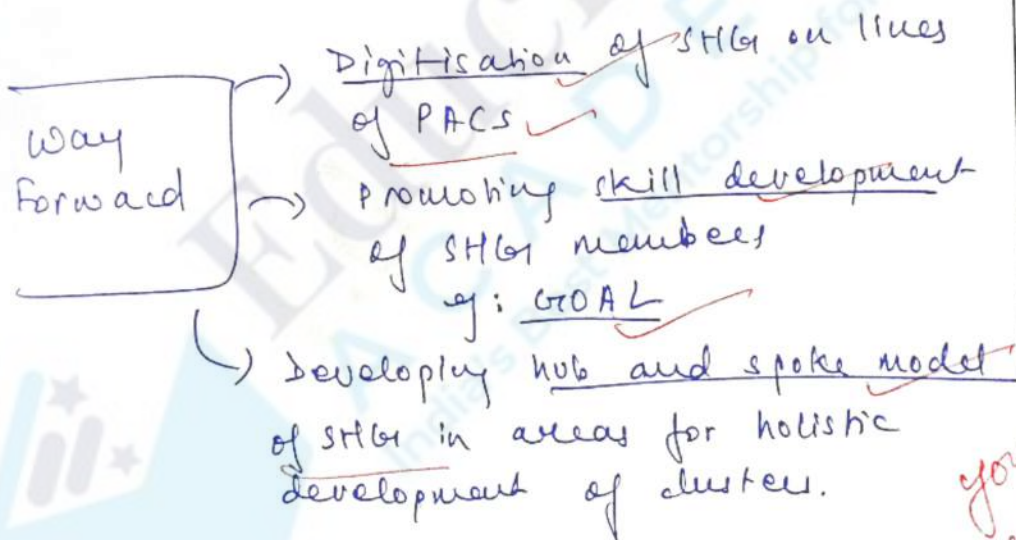 Way
Forward
Digitisation of SHG on lines
of PACS
Promoting skill development
of SHG members
eg: GOAL
Developing hub and spoke model
of SHG in areas for holistic
development of clusters.
India's Best Mentorship for